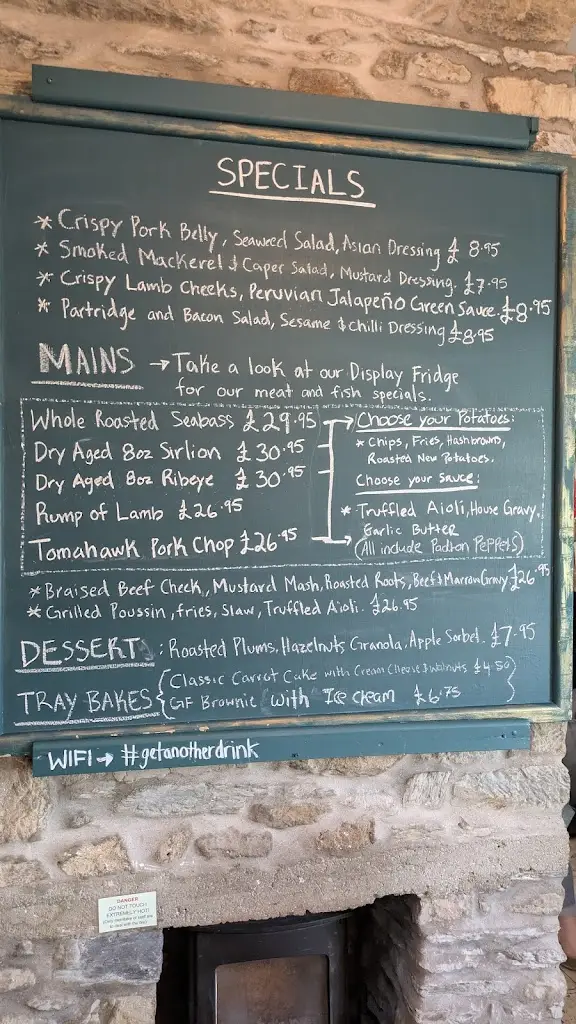 SPECIALS
* Crispy Pork Belly, Seaweed Salad, Asian Dressing £8.95
* Smoked Mackerel & Caper Salad, Mustard Dressing. £7.95
* Crispy Lamb Cheeks, Peruvian Jalapeño Green Sauce. £8.95
* Partridge and Bacon Salad, Sesame & Chilli Dressing £8.95
MAINS → Take a look at our Display Fridge
for our meat and fish specials.
Whole Roasted Seabass £29.95
Dry Aged 8oz Sirlion £30.95
Dry Aged 8oz Ribeye £30.95
Rump of Lamb £26.95
Tomahawk Pork Chop £26.95
Choose your Potatoes:
* Chips, Fries, Hashbrowns,
Roasted New Potatoes.
Choose your Sauce:
* Truffled Aioli, House Gravy,
Garlic Butter
(All include Padron Peppers)
* Braised Beef Cheek, Mustard Mash, Roasted Roots, Beef & Marrow Gravy £26.95
* Grilled Poussin, fries, Slaw, Truffled Aioli. £26.95
DESSERT : Roasted Plums, Hazelnuts Granola, Apple Sorbet. £7.95
TRAY BAKES { Classic Carrot Cake with Cream Cheese & Walnuts £4.50
GF Brownie with Ice cream £6.75 }
WIFI → #getanotherdrink
DANGER
DO NOT TOUCH
EXTREMELY HOT!